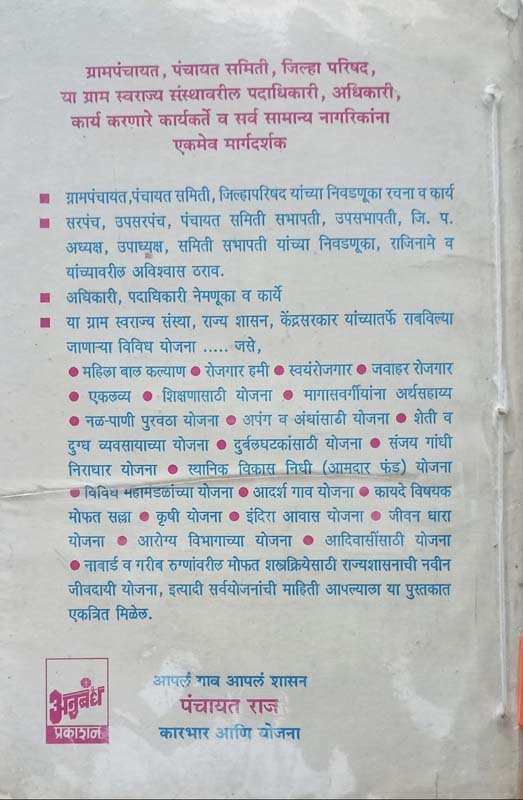 ग्रामपंचायत, पंचायत समिती, जिल्हा परिषद,
या ग्राम स्वराज्य संस्थावरील पदाधिकारी, अधिकारी,
कार्य करणारे कार्यकर्ते व सर्व सामान्य नागरिकांना
एकमेव मार्गदर्शक
■ ग्रामपंचायत,पंचायत समिती, जिल्हापरिषद यांच्या निवडणूका रचना व कार्य
■ सरपंच, उपसरपंच, पंचायत समिती सभापती, उपसभापती, जि. प.
अध्यक्ष, उपाध्यक्ष, समिती सभापती यांच्या निवडणूका, राजिनामे व
यांच्यावरील अविश्वास ठराव.
■ अधिकारी, पदाधिकारी नेमणूका व कार्ये
■ या ग्राम स्वराज्य संस्था, राज्य शासन, केंद्रसरकार यांच्यातर्फे राबविल्या
जाणाऱ्या विविध योजना ..... जसे,
● महिला बाल कल्याण ● रोजगार हमी ● स्वयंरोजगार ● जवाहर रोजगार
● एकलव्य ● शिक्षणासाठी योजना ● मागासवर्गीयांना अर्थसहाय्य
● नळ-पाणी पुरवठा योजना ● अपंग व अंधांसाठी योजना ● शेती व
दुग्ध व्यवसायाच्या योजना ● दुर्बलघटकांसाठी योजना ● संजय गांधी
निराधार योजना ● स्थानिक विकास निधी (आमदार फंड) योजना
● विविध महामंडळांच्या योजना ● आदर्श गाव योजना ● कायदे विषयक
मोफत सल्ला ● कृषी योजना ● इंदिरा आवास योजना ● जीवन धारा
योजना ● आरोग्य विभागाच्या योजना ● आदिवासींसाठी योजना
● नाबार्ड व गरीब रुग्णांवरील मोफत शस्त्रक्रियेसाठी राज्यशासनाची नवीन
जीवदायी योजना, इत्यादी सर्वयोजनांची माहिती आपल्याला या पुस्तकात
एकत्रित मिळेल.
अनुबंध
प्रकाशन
आपलं गाव आपलं शासन
पंचायत राज
कारभार आणि योजना